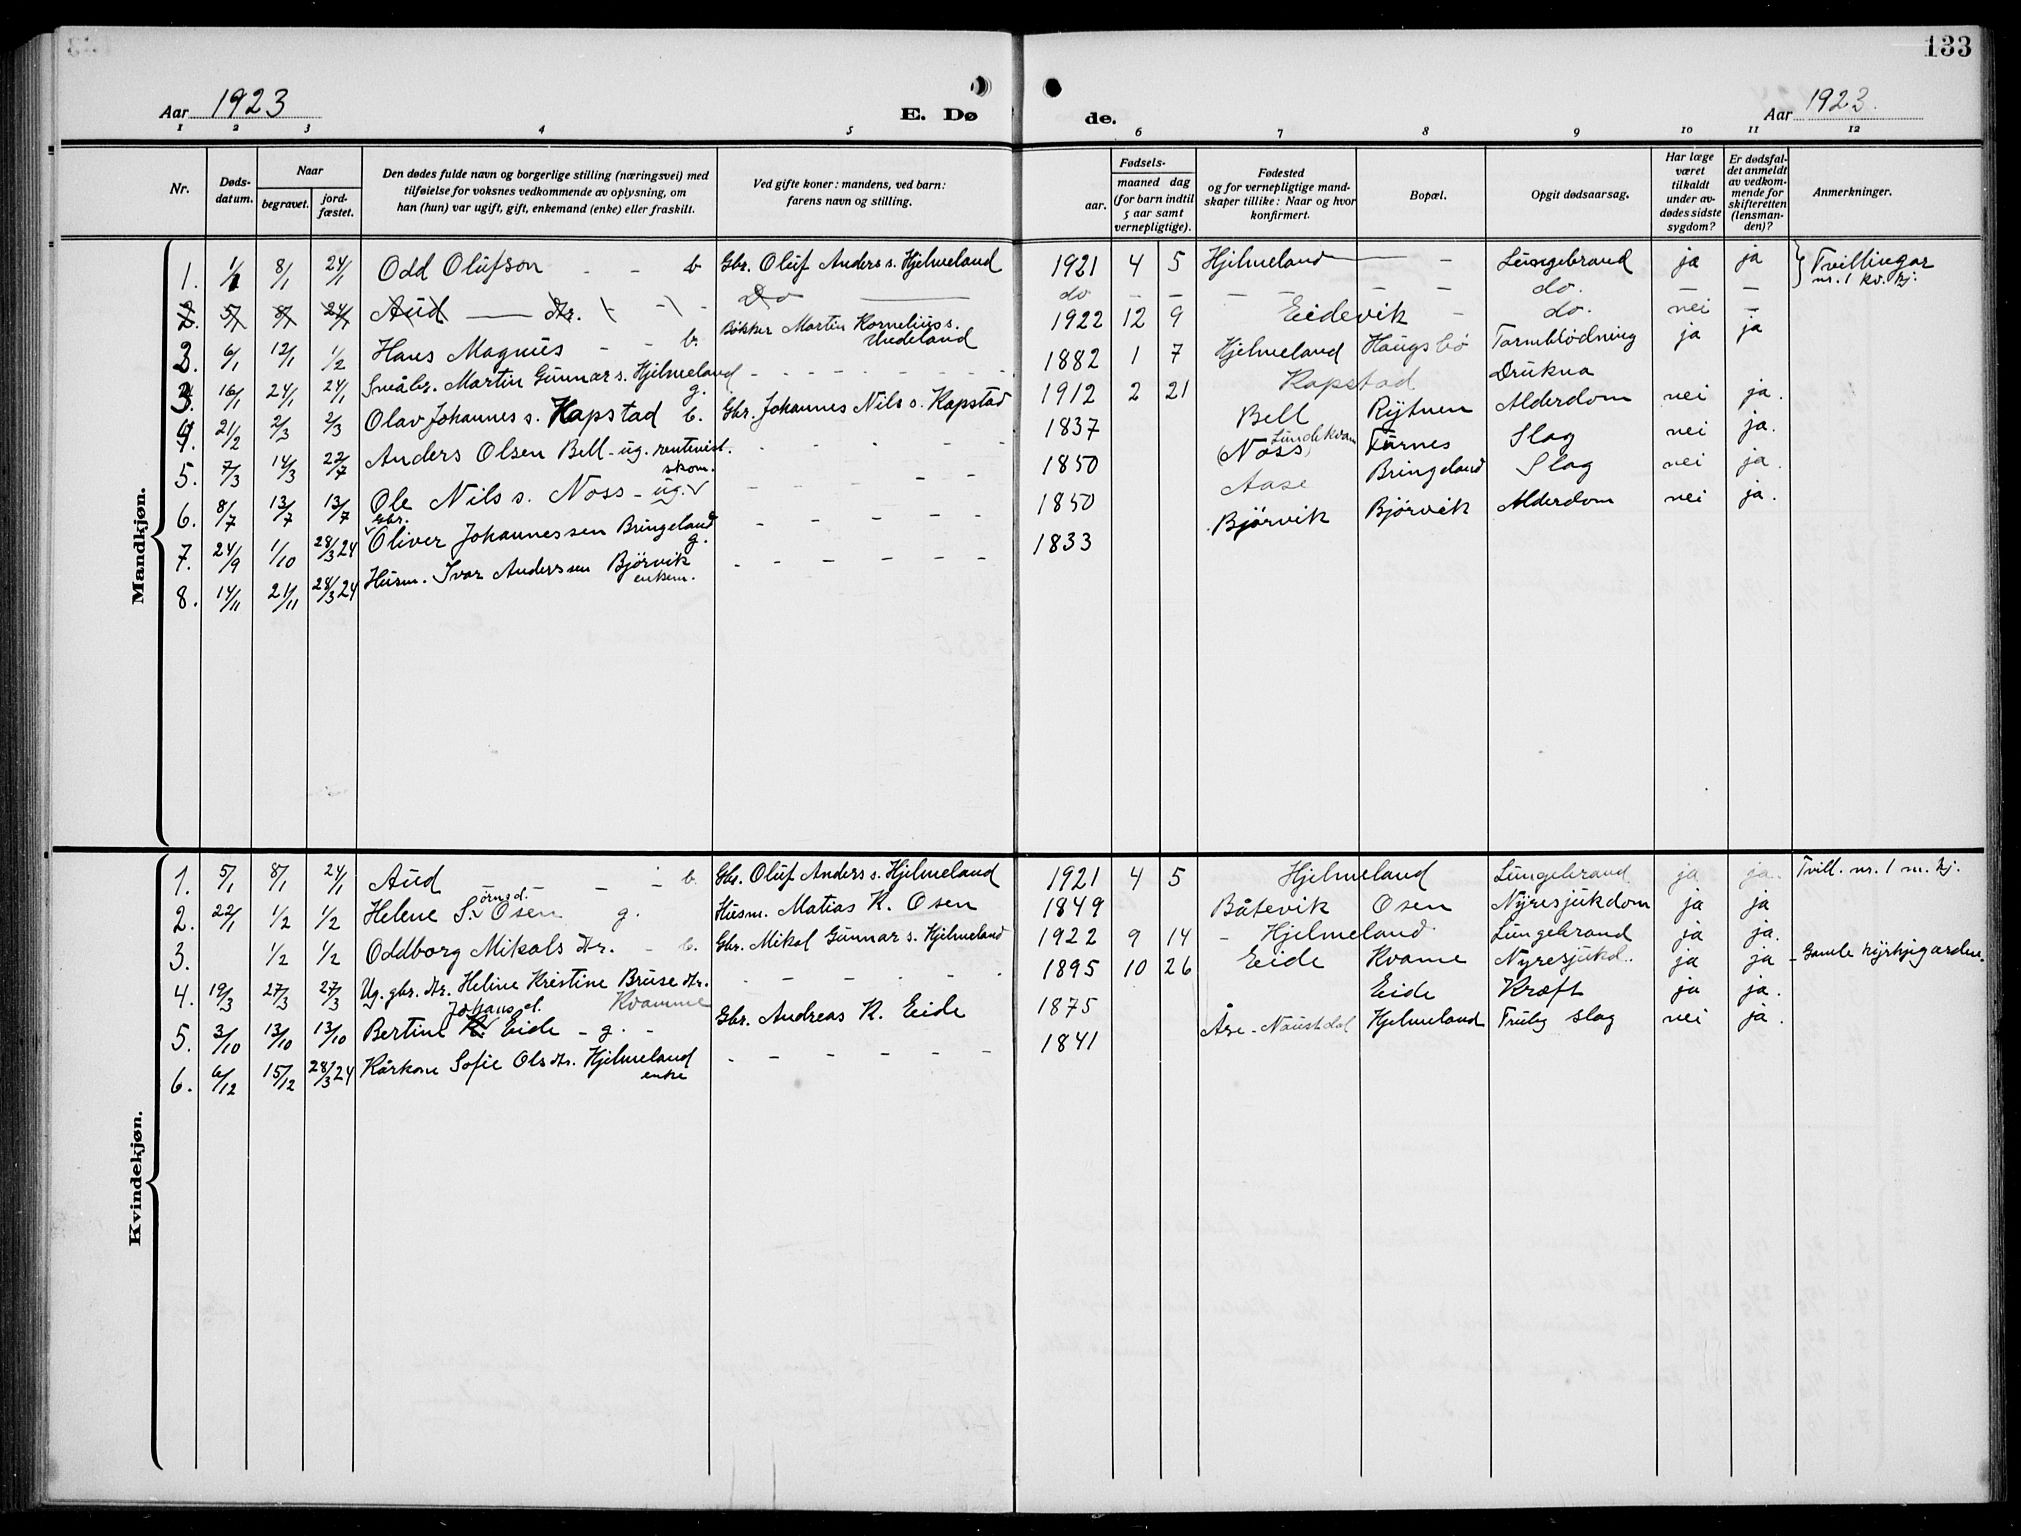 133
Aar 1923
E. Dø
de.
Aar 1923.
1 2 3 4 5 6 7 8 9 10 11 12
Nr.
Døds-
datum.
Naar
begravet.
jord-
fæstet.
Den dødes fulde navn og borgerlige stilling (næringsvei) med
tilføielse for voksnes vedkommende av oplysning, om
han (hun) var ugift, gift, enkemand (enke) eller fraskilt.
Ved gifte koner: mandens, ved barn:
farens navn og stilling.
Fødsels-
aar.
maaned dag
(for barn indtil
5 aar samt
vernepligtige).
Fødested
og for vernepligtige mand-
skaper tillike: Naar og hvor
konfirmert.
Bopæl.
Opgit dødsaarsag.
Har læge
været
tilkaldt
under av-
dødes sidste
sygdom?
Er dødsfal-
det anmeldt
av vedkom-
mende for
skifteretten
(lensman-
den)?
Anmerkninger.
Mandkjøn.
1. 1/1 8/1 24/1 Odd Olufson - - b Gbr. Oluf Anders s. Hjelmeland 1921 4 5 Hjelmeland - Lungebrand ja ja Tvillingar
nr. 1 kv. kj.
2. 5/1 8/1 24/1 Aud dtr. Do do - - - - - - do. - -
2. 6/1 12/1 1/2 Hans Magnus - - b. Bøkker Martin Kornelius s. 1922 12 9 Eidevik - do. nei -
Indeland
3. 16/1 24/1 24/1 Småbr. Martin Gunnar s. Hjelmeland g. - - - 1882 1 7 Hjelmeland Haugsbø Tarmblödning ja ja
4. 21/2 2/3 2/3 Olav Johannes s. Kapstad b. Gbr. Johannes Nils s. Kapstad 1912 2 21 Kapstad Drukna
5. 7/3 14/3 22/7 Anders Olsen Bell - ug. rentenist. - - - 1837 Bell Rytnen Alderdom nei ja.
skom.
6. 8/7 13/7 13/7 Ole Nils s. Noss - ug. - - - 1850 (Noss) Lundekvam Furnes Slag nei ja.
Gbr.
7. 24/9 1/10 28/3 24 Oliver Johannessen Bringeland g. - - - 1850 Aase Bringeland Slag nei ja.
8. 14/11 21/11 28/3 24 Husm. Ivar Anderssen Björvik - - - 1833 Björvik Björvik Alderdom nei ja.
enkem.
Kvindekjøn.
1. 5/1 8/1 24/1 Aud - - b. Gbr. Oluf Anders s. Hjelmeland 1921 4 5 Hjelmeland Lungebrand ja ja. Tvill. nr. 1 m. kj.
örnsd.
2. 22/1 1/2 1/2 Helene S. Osen g. Husm. Matias K. Osen 1849 Båtevik Osen Nyresjukdom ja ja
3. 1/2 1/2 Oddborg Mikals dtr. - b. Gbr. Mikal Gunnar s. Hjelmeland 1922 9 14 - Hjelmeland Lungebrand ja ja.
4. 19/3 27/3 27/3 Ug. gbr. dtr. Heline Kristine Bruse dtr. - - - 1895 10 26 Eide Kvame Nyresjukd. ja ja - Gamle kyrkjegarden.
Kvamme
Johans d.
5. 3/10 13/10 13/10 Bertine K. Eide - g. - Gbr. Andreas K. Eide 1875 Eide Kræft ja ja.
6. 6/12 15/12 28/3 24 Kårkone Sofie Ols dtr. Hjelmeland - - - 1841 Åse - Naustdal Hjelmeland Truleg slag nei ja.
enke